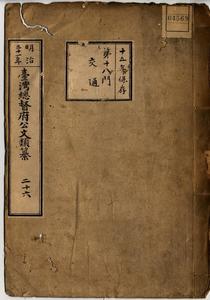 十五年保存
第十八門
交通
明治三十一年
臺灣總督府公文類纂
二十六
04569